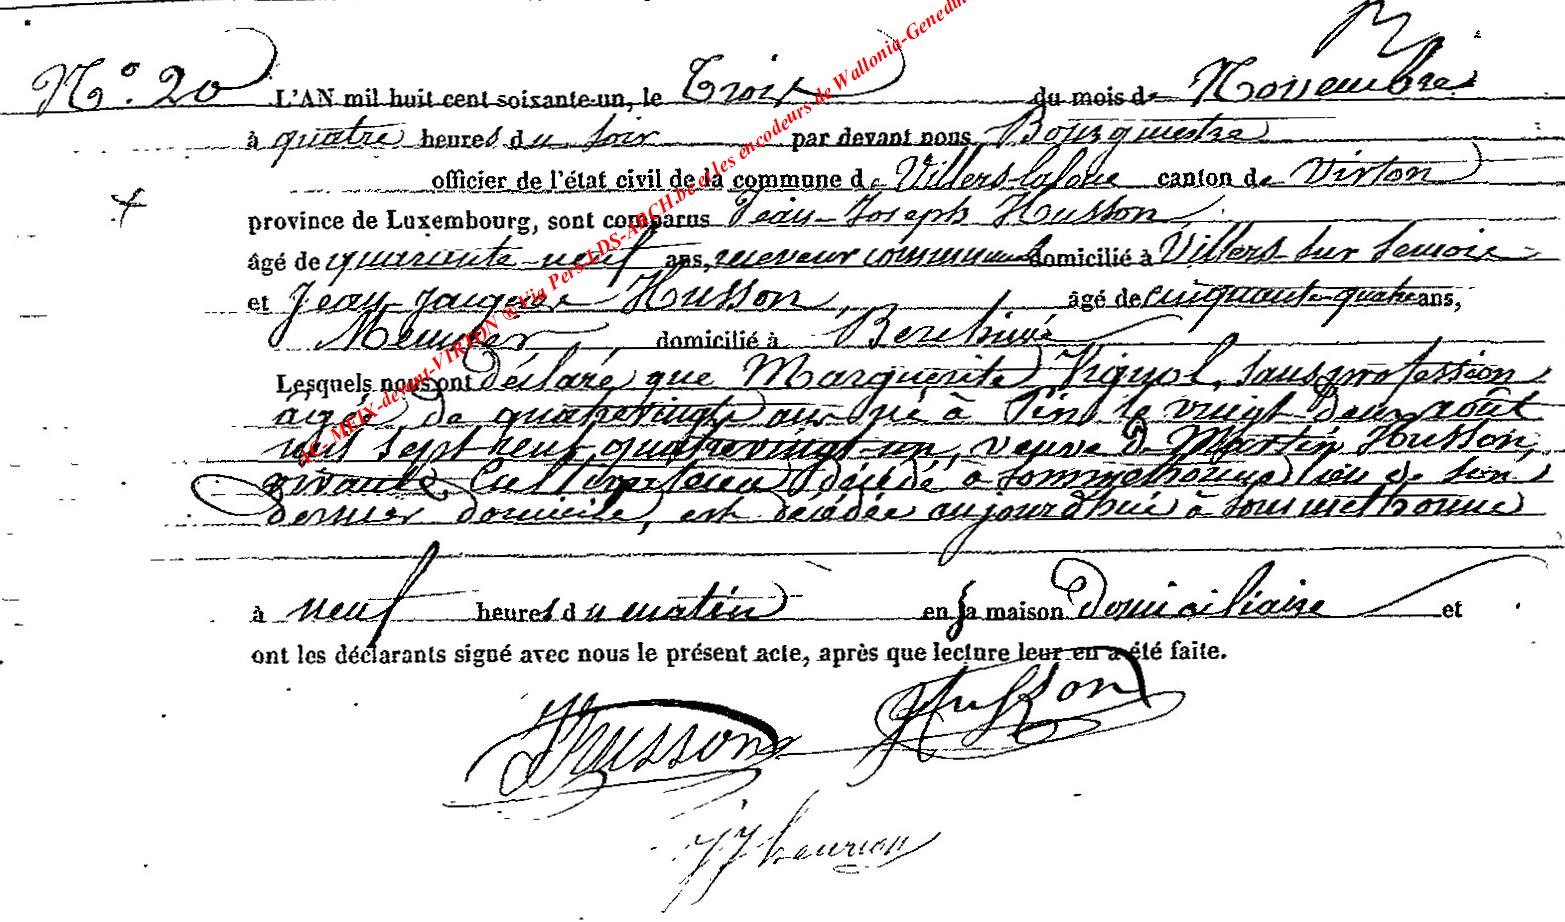 N.° 20 L'AN mil huit cent soixante-un, le Trois du mois de Novembre
à quatre heures du soir par devant nous, Bourguestre
officier de l'état civil de la commune de Villers-laloue canton de Virton
province de Luxembourg, sont comparus Jean-Joseph Husson
âgé de quarante-neuf ans, receveur communal domicilié à Villers sur Semois
et Jean Jacques Husson, âgé de cinquante-quatre ans,
Meunier domicilié à Berchiwé
Lesquels nous ont déclaré que Marguerite Vignol, sans profession
âgée de quatrevingts ans né à Pin le vingt deux août
mil sept cent quatrevingt-un, veuve de Martin Husson,
vivant Cultivateur décédé à Sommethonne lieu de son
dernier domicile, est décédée aujourd'hui à Sommethonne
à neuf heures du matin en sa maison domiciliaire et
ont les déclarants signé avec nous le présent acte, après que lecture leur en a été faite.
Husson Husson
JJ
AC-MEIX-devant-VIRTON @Via Pers-LDS-ARCH.be et les encodeurs de Wallonia-Genedin